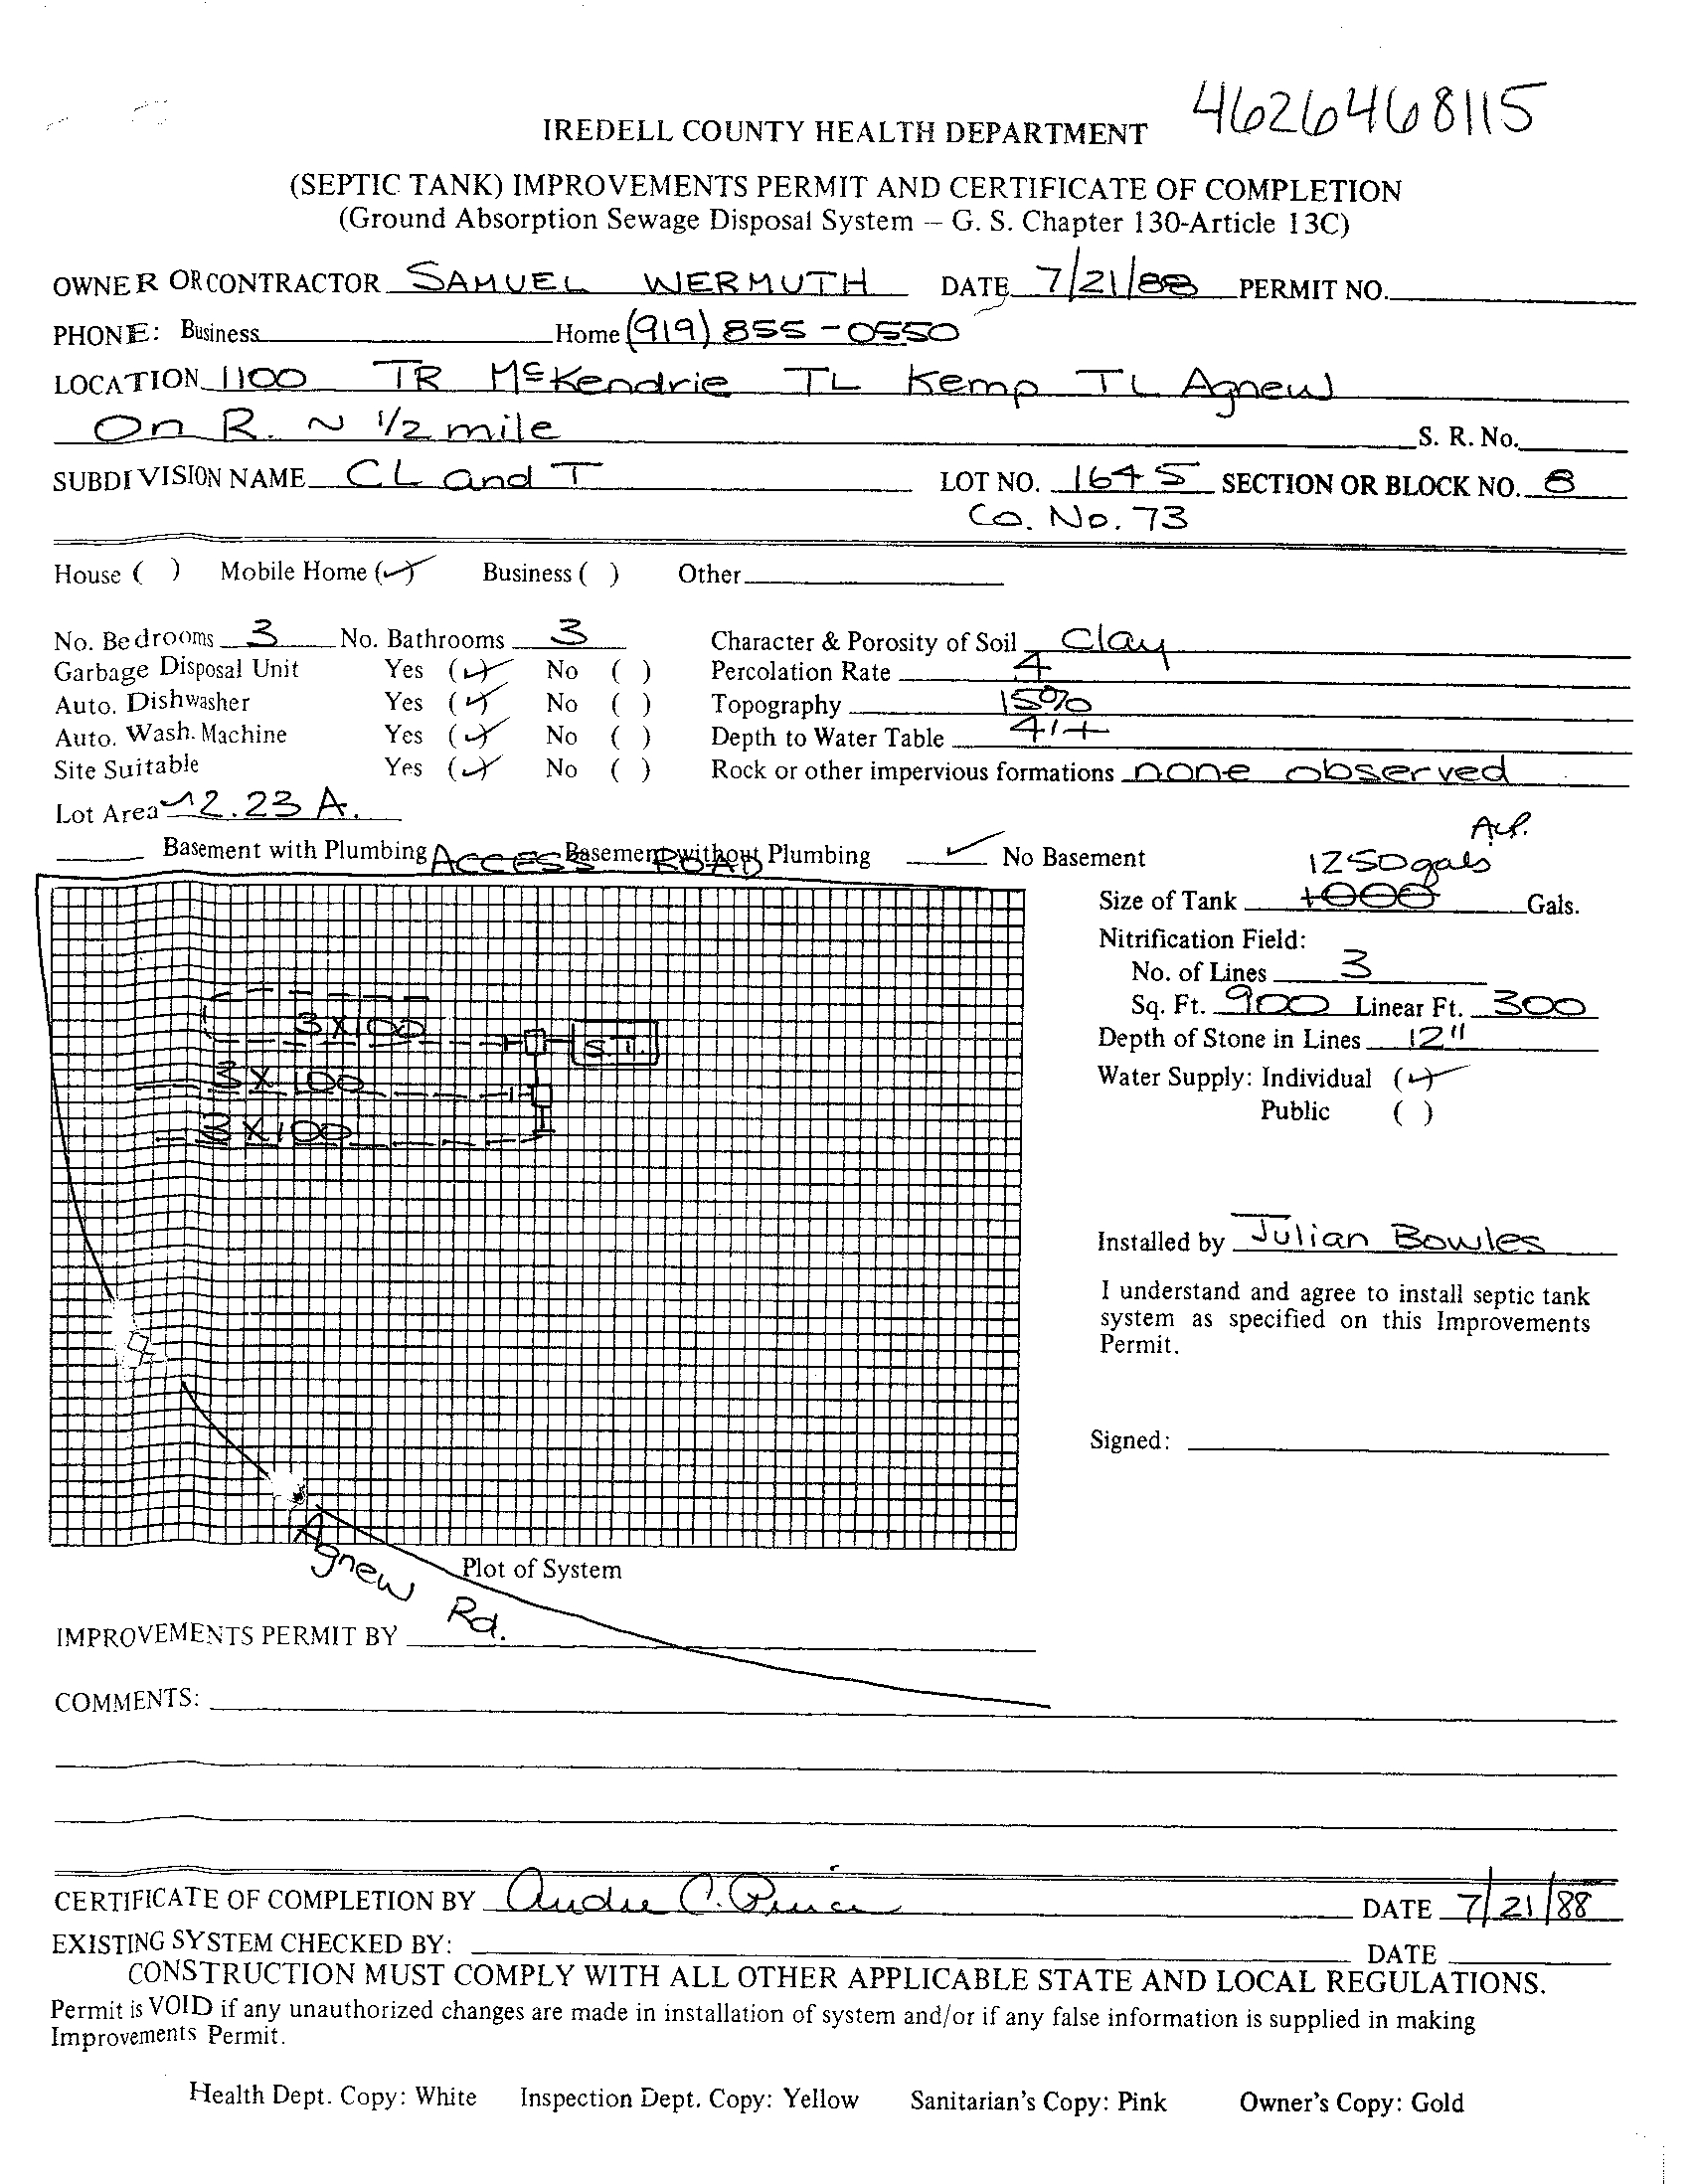 4626468115
IREDELL COUNTY HEALTH DEPARTMENT
(SEPTIC TANK) IMPROVEMENTS PERMIT AND CERTIFICATE OF COMPLETION
(Ground Absorption Sewage Disposal System – G. S. Chapter 130-Article 13C)
OWNER OR CONTRACTOR SAMUEL WERMUTH DATE 7/21/88 PERMIT NO.
PHONE: Business Home (919) 855-0550
LOCATION 1100 TR McKendrie TL Kemp TL Agnew
On R. ~ 1/2 mile S. R. No.
SUBDIVISION NAME CL and T LOT NO. 164 5 SECTION OR BLOCK NO. 8
Co. No. 73
House ( ) Mobile Home (✓) Business ( ) Other
No. Bedrooms 3 No. Bathrooms 3 Character & Porosity of Soil Clay
Garbage Disposal Unit Yes (✓) No ( ) Percolation Rate 4
Auto. Dishwasher Yes (✓) No ( ) Topography 15%
Auto. Wash. Machine Yes (✓) No ( ) Depth to Water Table 4'+
Site Suitable Yes (✓) No ( ) Rock or other impervious formations none observed
Lot Area ~2.23 A.
Basement with Plumbing Basement without Plumbing ✓ No Basement
ACCESS ROAD
1250 gals
Size of Tank 1000 Gals.
Nitrification Field:
No. of Lines 3
Sq. Ft. 900 Linear Ft. 300
Depth of Stone in Lines 12"
Water Supply: Individual (✓)
Public ( )
3 X 100
S.T.
3 X 100
3 X 100
Installed by Julian Bowles
I understand and agree to install septic tank
system as specified on this Improvements
Permit.
Signed:
Agnew Rd.
Plot of System
IMPROVEMENTS PERMIT BY
COMMENTS:
CERTIFICATE OF COMPLETION BY DATE 7/21/88
EXISTING SYSTEM CHECKED BY: DATE
CONSTRUCTION MUST COMPLY WITH ALL OTHER APPLICABLE STATE AND LOCAL REGULATIONS.
Permit is VOID if any unauthorized changes are made in installation of system and/or if any false information is supplied in making
Improvements Permit.
Health Dept. Copy: White Inspection Dept. Copy: Yellow Sanitarian's Copy: Pink Owner's Copy: Gold